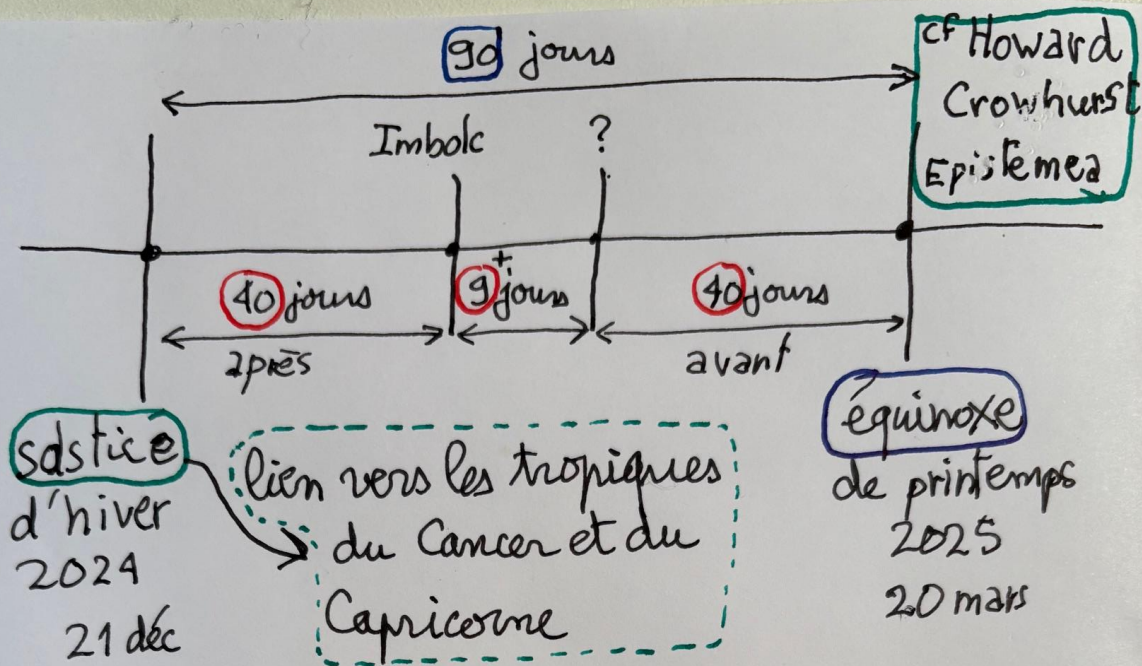 90 jours
cf Howard
Crowhurst
Epistemea
Imbolc
?
40 jours
après
9+ jours
40 jours
avant
solstice
d'hiver
2024
21 déc
lien vers les tropiques
du Cancer et du
Capricorne
équinoxe
de printemps
2025
20 mars